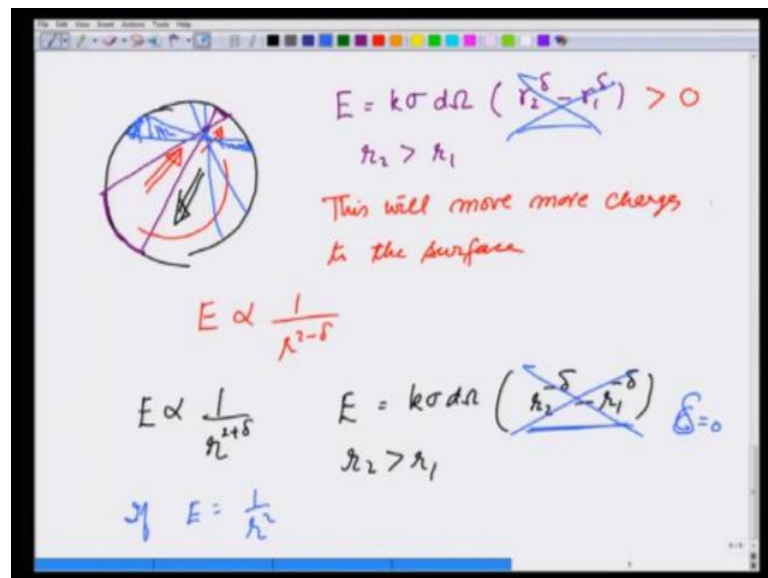 File Edit View Insert Actions Tools Help
E = kσ dΩ ( r₂^δ − r₁^δ ) > 0
r₂ > r₁
This will move more charges
to the surface
E ∝ 1/r^{2-δ}
E ∝ 1/r^{2+δ} E = kσ dΩ ( r₂^{-δ} − r₁^{-δ} ) δ=0
r₂ > r₁
If E = 1/r²